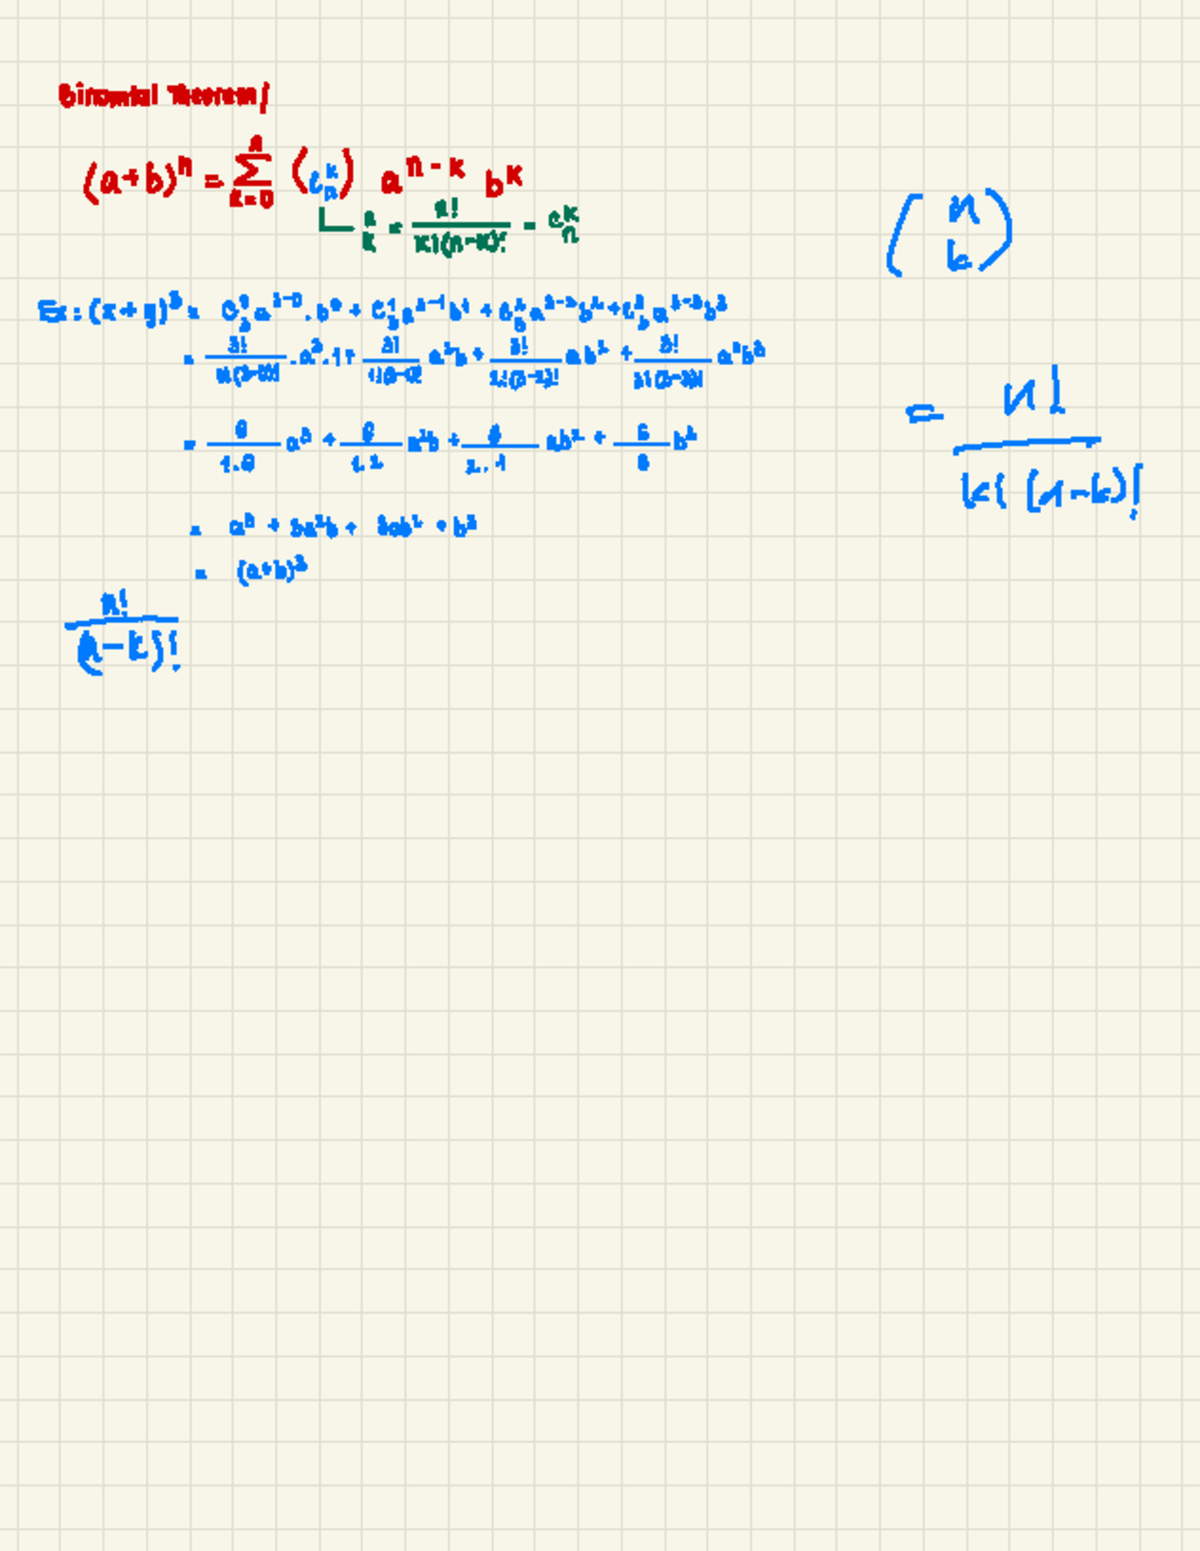 Binomial Theorem/
(a+b)^n = \sum_{k=0}^{n} (C_n^k) a^{n-k} b^k
n k = \frac{n!}{k!(n-k)!} = C_n^k
Ex: (x+y)^3 = C_3^0 a^{3-0} . b^0 + C_3^1 a^{3-1} b^1 + C_3^2 a^{3-2} b^2 + C_3^3 a^{3-3} b^3
= \frac{3!}{0!(3-0)!} . a^3 . 1 + \frac{3!}{1!(3-1)!} a^2 b + \frac{3!}{2!(3-2)!} a b^2 + \frac{3!}{3!(3-3)!} a^0 b^3
= \frac{6}{1.6} a^3 + \frac{6}{1.2} a^2 b + \frac{6}{2.1} a b^2 + \frac{6}{6} b^3
= a^3 + 3a^2b + 3ab^2 + b^3
= (a+b)^3
\frac{n!}{(n-k)!}
\binom{n}{k}
= \frac{n!}{k!(n-k)!}